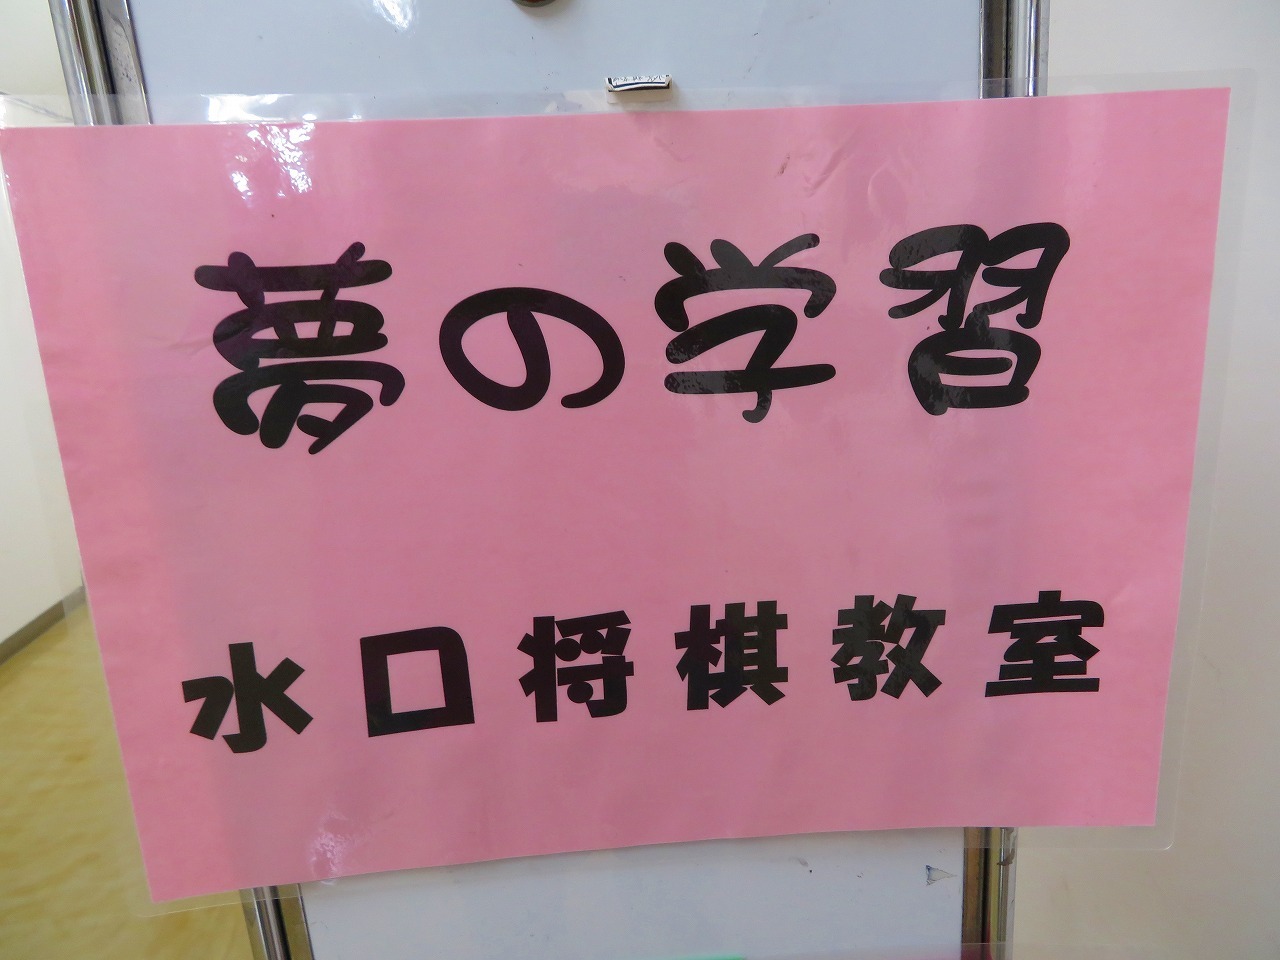 夢の学習
水口将棋教室